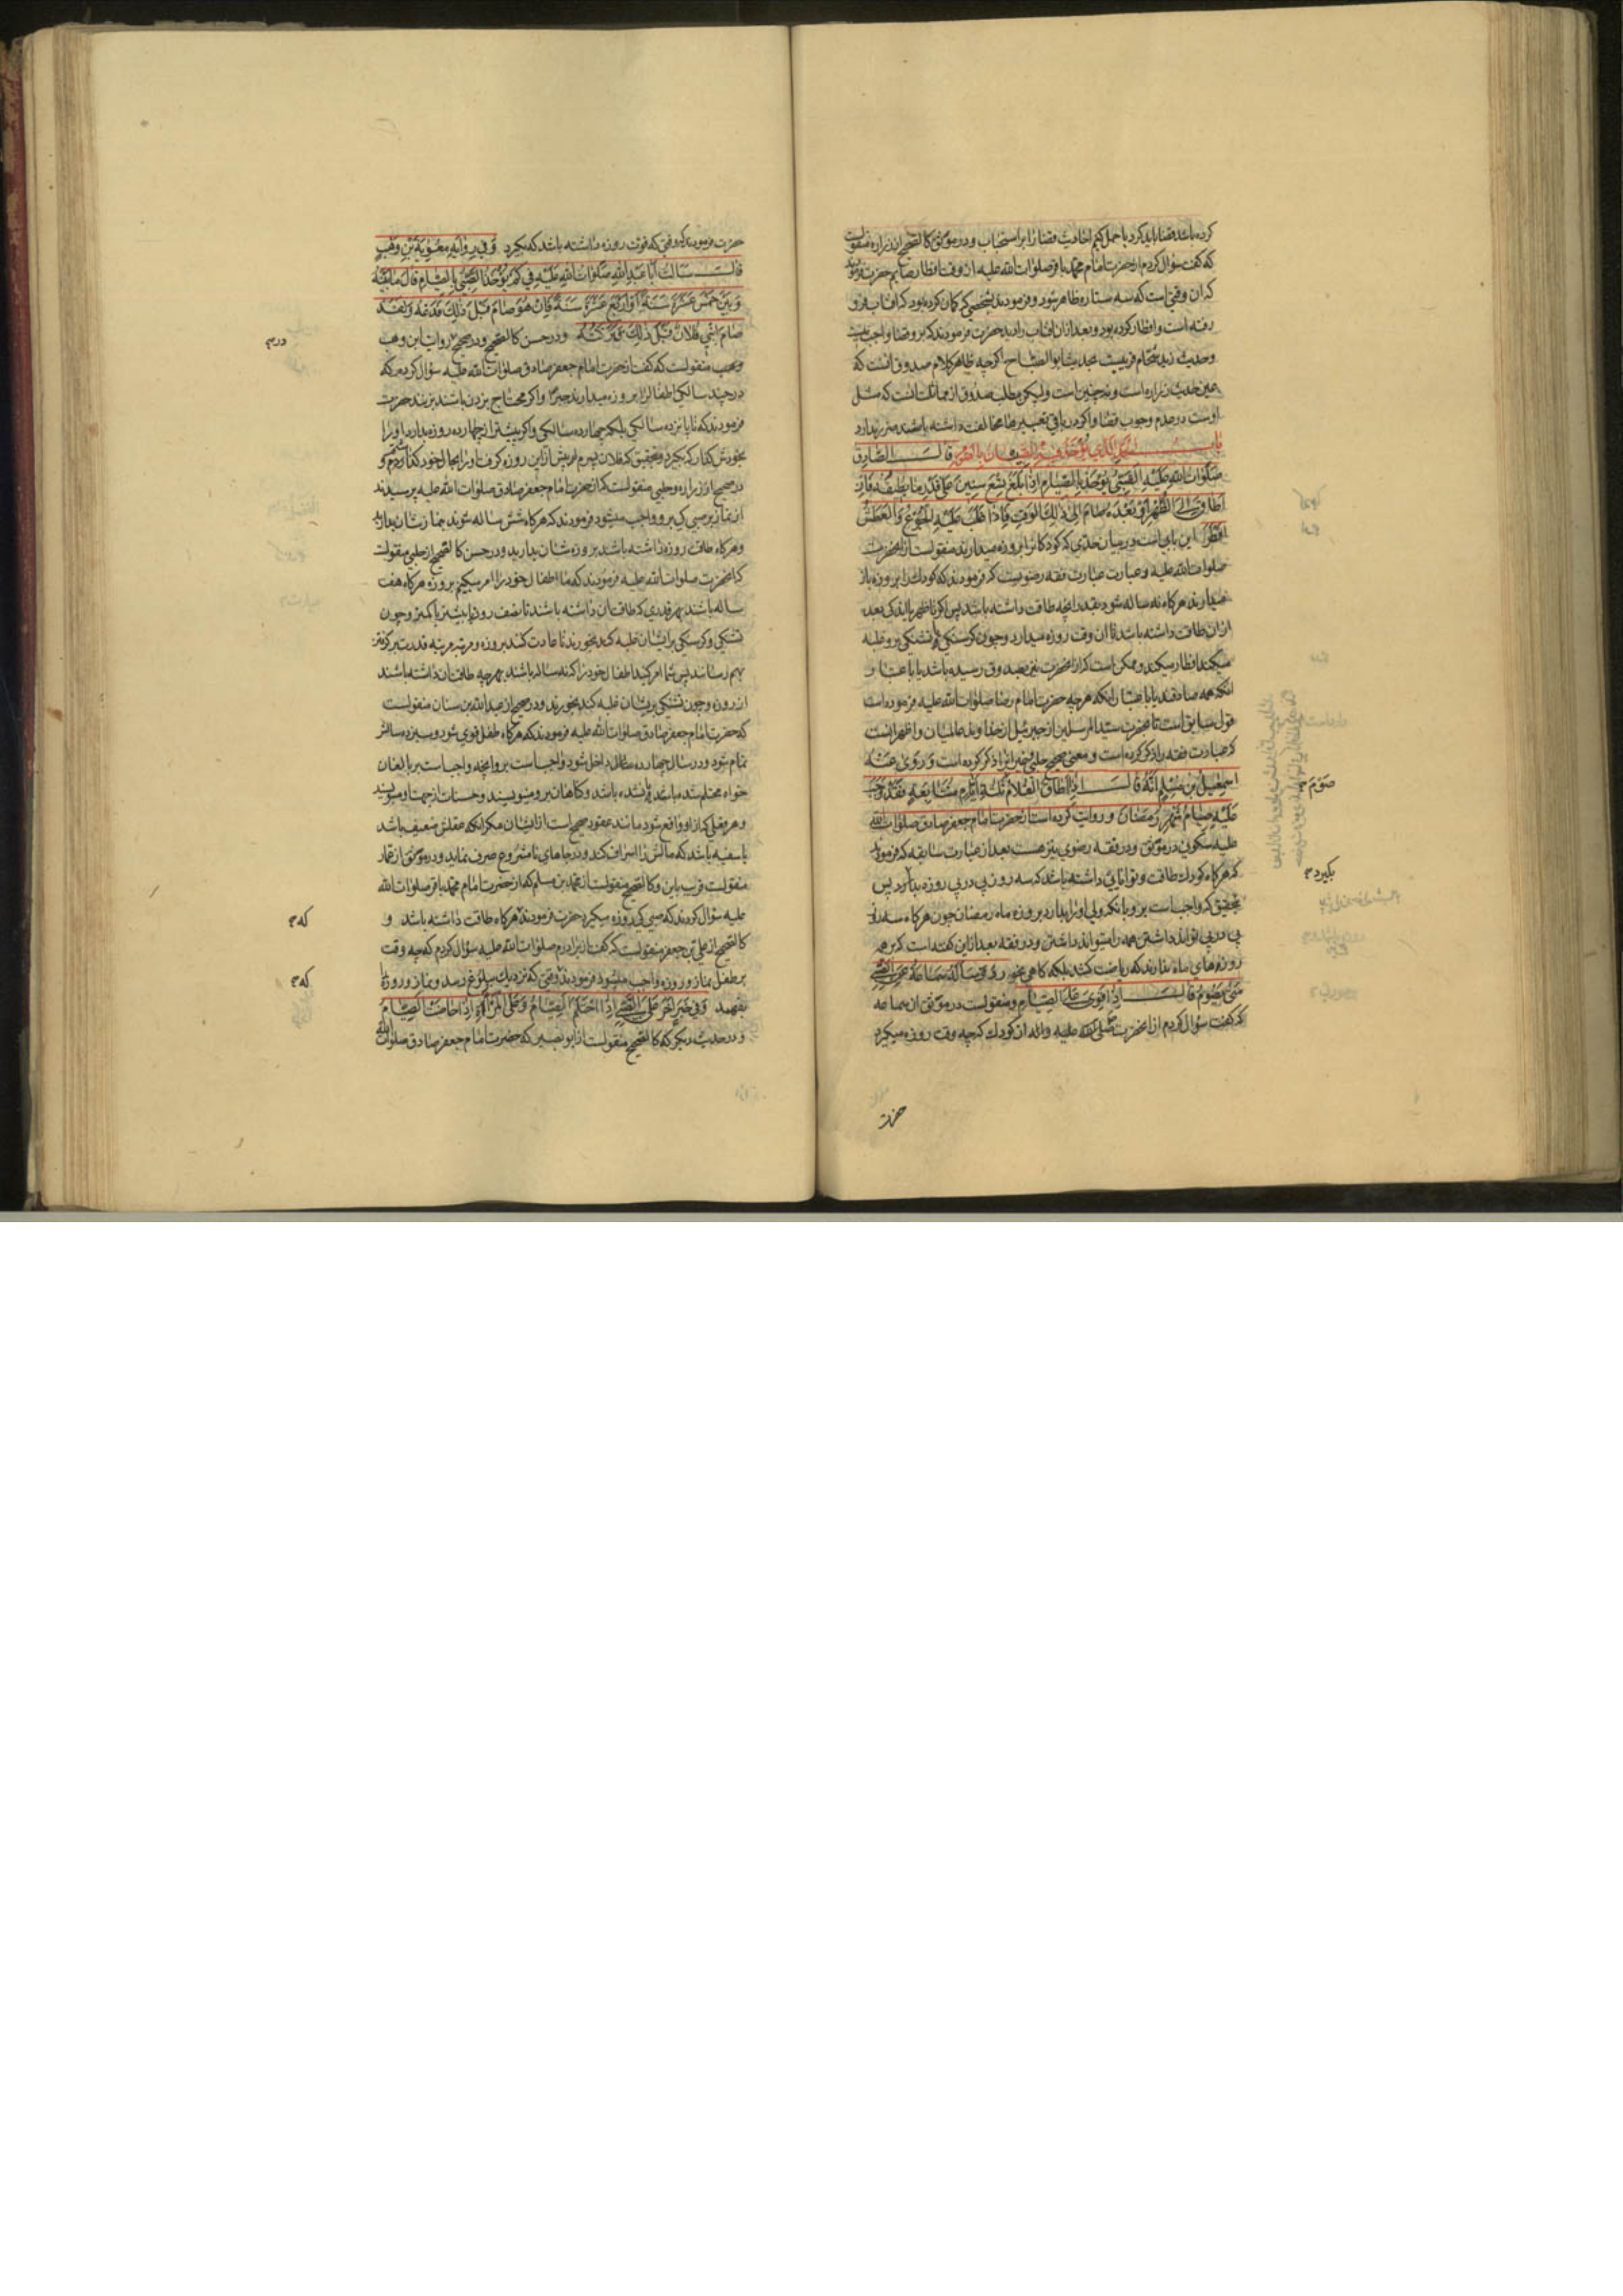 کرده باشد قضا باید کرد یا حمل کنیم احادیث قضا را بر استحباب و در موثق کالصحیح از زراره منقولست
که گفت سؤال کردم از حضرت امام محمد باقر صلوات الله علیه از وقت افطار صایم حضرت فرمودند
که آن وقتی است که سه ستاره ظاهر شود و فرمودند شخصی که گمان کرده بود که افتاب فرو
رفته است و افطار کرده بود و بعد از ان افتاب را دید حضرت فرمودند که برو قضا واجب نیست
و حدیث زید شحام قریبست بحدیث ابو الصباح اگرچه ظاهر کلام صدوق انست که
عین حدیث زراره است و نه چنین است ولیکن مطلب صدوق از مماثلت انست که مثل
اوست در عدم وجوب قضا و اگر در باقی تعبیرها مخالفت داشته باشند ضرر ندارد
باب الحد الذی یؤخذ فیه الصبیان بالصوم قال الصادق
صلوات الله علیه الصبی یؤخذ بالصیام اذا بلغ تسع سنین علی قدر ما یطیقه فان
اطاق الی الظهر او بعده صام الی ذلک الوقت فاذا غلب علیه الجوع و العطش
افطر این بابی است در بیان حدی که کودکانرا بروزه میدارند منقولست از انحضرت
صلوات الله علیه و عبارت عبارت فقه رضویست که فرمودند که کودک را بروزه باز
میدارند هرگاه نه ساله شود بقدر انچه طاقت داشته باشد پس اگر تا ظهر یا اندکی بعد
ازان طاقت داشته باشد تا ان وقت روزه میدارد و چون گرسنگی و تشنگی برو غلبه
میکند افطار میکند و ممکن است که از انحضرت نیز بصدوق رسیده باشد یا باعتبار
انکه همه صادقند یا باعتبار انکه هرچه حضرت امام رضا صلوات الله علیه فرموده است
قول سابق است تا حضرت سید المرسلین از جبرئیل از خداوند عالمیان و اظهر انست
که عبارت فقه را ذکر کرده است و معنی صحیح حلبی و غیر انرا ذکر کرده است و روی عنه
اسمعیل بن مسلم انه قال اذا اطاق الغلام ثلثة ایام متتابعة فقد وجب
علیه صیام شهر رمضان و روایت کرده است از حضرت امام جعفر صادق صلوات الله
علیه سکونی در موثق و در فقه رضوی نیز هست بعد از عبارت سابقه که فرمودند
که هرگاه کودک طاقت و توانایی داشته باشد که سه روز پی در پی روزه بدارد پس
بتحقیق که واجب است برو یا انکه ولی او را بدارد بروزه ماه رمضان چون هرگاه سه روز
پی در پی تواند داشتن همه را میتواند داشتن و در فقه بعد از این گفته است که بر همه
روزه های ماه ندارند که ریاضت کشد بلکه گاهی بخورد و ساله سماعة عن الصبی
متی یصوم قال اذا قوی علی الصیام و منقولست در موثق از سماعه
که گفت سؤال کردم از انحضرت صلی الله علیه و اله از کودک که چه وقت روزه میگیرد
حضرت
صوم
بگیرد م
حضرت فرمودند که وقتی که قوت روزه داشته باشد که بگیرد و فی روایة معویة بن وهب
قال سالت ابا عبد الله صلوات الله علیه فی کم یؤخذ الصبی بالصیام قال ما بینه
و بین خمس عشرة سنة او اربع عشرة سنة فان هو صام قبل ذلک فدعه و لقد
صام ابنی فلان قبل ذلک فترکته و در حسن کالصحیح و در صحیح روایت ابن وهب
وهب منقولست که گفت از حضرت امام جعفر صادق صلوات الله علیه سؤال کردم که
در چند سالگی اطفال را بروزه میدارند جبرا و اگر محتاج بزدن باشند بزنند حضرت
فرمودند که تا پانزده سالگی بلکه چهارده سالگی و اگر پیشتر از چهارده روزه بدارد او را
بخودش گذار که بگیرد و بتحقیق که فلان پسرم پیش ازین روزه گرفت او را بحال خود گذاشتم و
در صحیح از زراره و حلبی منقولست که از حضرت امام جعفر صادق صلوات الله علیه پرسیدند
از نماز بر صبی کی برو واجب میشود فرمودند که هرگاه شش ساله شوند بنمازشان بدارید
و هرگاه طاقت روزه داشته باشد بروزه شان بدارید و در حسن کالصحیح از حلبی منقولست
که انحضرت صلوات الله علیه فرمودند که ما اطفال خود را امر میکنیم بروزه هرگاه هفت
ساله باشند بهر قدری که طاقت ان داشته باشند تا نصف روز یا بیشتر یا کمتر و چون
تشنگی و گرسنگی برایشان غلبه کند بخورند تا عادت کنند بروزه و مرتبه مرتبه قدرت بر گرفتن
بهم رسانند پس شما امر کنید اطفال خود را که نه ساله باشند بهرچه طاقت ان داشته باشند
از روزه و چون تشنگی بریشان غلبه کند بخورند و در صحیح از عبد الله بن سنان منقولست
که حضرت امام جعفر صادق صلوات الله علیه فرمودند که هرگاه طفل قوی شود و سیزده سالش
تمام شود و در سال چهارده سالگی داخل شود واجب است برو انچه واجب است بر بالغان
خواه محتلم شده باشد یا نشده باشد و گناهان برو مینویسند و حسنات از جهت او مینویسند
و هر فعلی که از او واقع شود مانند عقود صحیح است از ایشان مگر انکه عقلش ضعیف باشد
یا سفیه باشد که مالش را اسراف کند و در جاهای نامشروع صرف نماید و در موثق از عمار
منقولست قریب باین و کالصحیح منقولست از محمد بن مسلم که از حضرت امام محمد باقر صلوات الله
علیه سؤال کردند که صبی کی روزه میگیرد حضرت فرمودند هرگاه طاقت داشته باشد و
کالصحیح از علی بن جعفر منقولست که گفت از برادرم صلوات الله علیه سؤال کردم که چه وقت
بر طفل نماز و روزه واجب میشود فرمودند وقتی که نزدیک بلوغ رسد و نماز و روزه را
بفهمد و فی خبر اخر علی الصبی اذا احتلم الصیام و علی المرأة اذا حاضت الصیام
و در حدیث دیگر که کالصحیح منقولست از ابو بصیر که حضرت امام جعفر صادق صلوات الله
در م
که م
که م